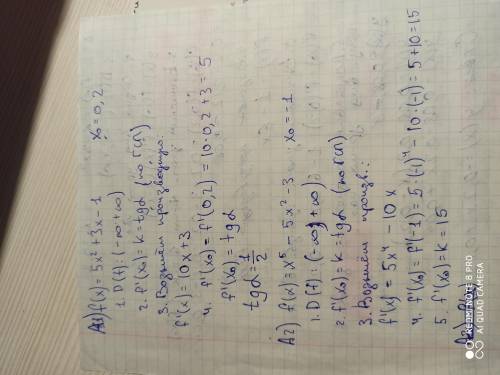 А1) f(x) = 5x² + 3x - 1   x₀ = 0,2
1. D(f): (-∞; +∞)
2. f'(x₀) = k = tgα (по ГСП)
3. Возьмём производную:
f'(x) = 10x + 3
4. f'(x₀) = f'(0,2) = 10·0,2 + 3 = 5
f'(x₀) = tgα
tgα = 1/2
А2) f(x) = x⁵ - 5x² - 3   x₀ = -1
1. D(f): (-∞; +∞)
2. f'(x₀) = k = tgα (по ГСП)
3. Возьмём произв.:
f'(x) = 5x⁴ - 10x
4. f'(x₀) = f'(-1) = 5·(-1)⁴ - 10·(-1) = 5 + 10 = 15
5. f'(x₀) = k = 15
REDMI NOTE 8 PRO
AI QUAD CAMERA